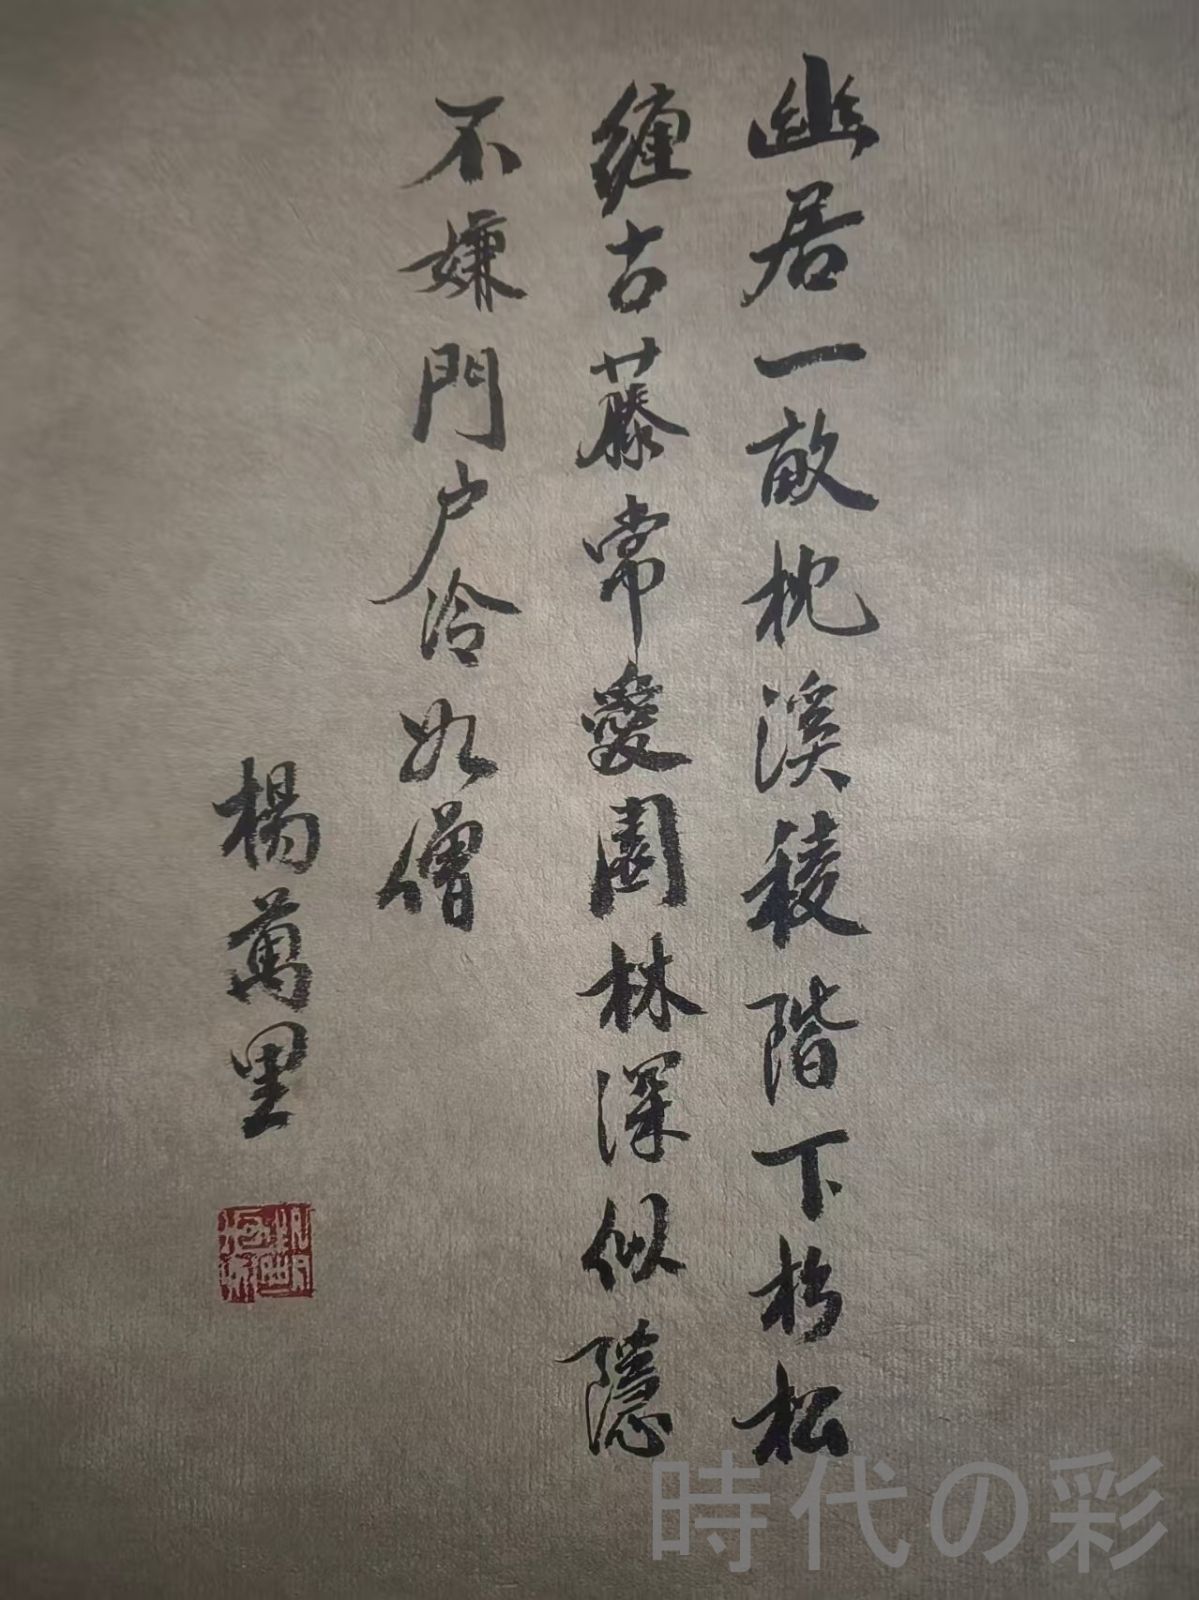 幽居一畝枕溪稜階下杉松
纏古藤常愛園林深似隱
不嫌門戶冷如僧
楊萬里
時代の彩